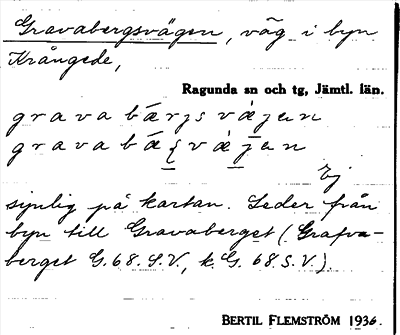 Gravabergsvägen, väg i byn
Krångede,
Ragunda sn och tg, Jämtl. län.
gravabärjsväjen
gravabäʃväjen
Ej
synlig på kartan. Leder från
byn till Gravaberget (Grafva-
berget G.68.S.V., k.G. 68.S.V.).
BERTIL FLEMSTRÖM 1936.